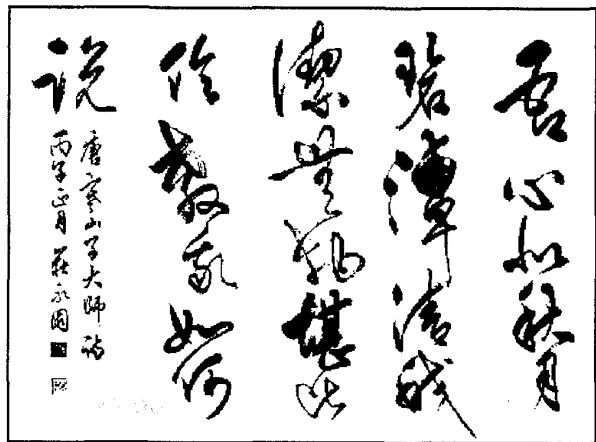 吾心似秋月
碧潭清皎
潔無物堪比
倫教我如何
説
唐寒山子大師詩
丙子正月莊永固